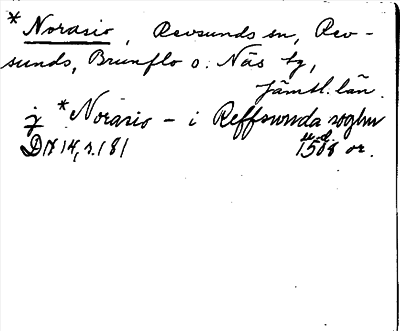 *Norasio, Revsunds sn, Rev-
sunds, Brunflo o. Näs tg,
Jämtl. län.
j *Norasio - i Reffswnda soghn
u. d.
DN 14, s. 181 1508 or.